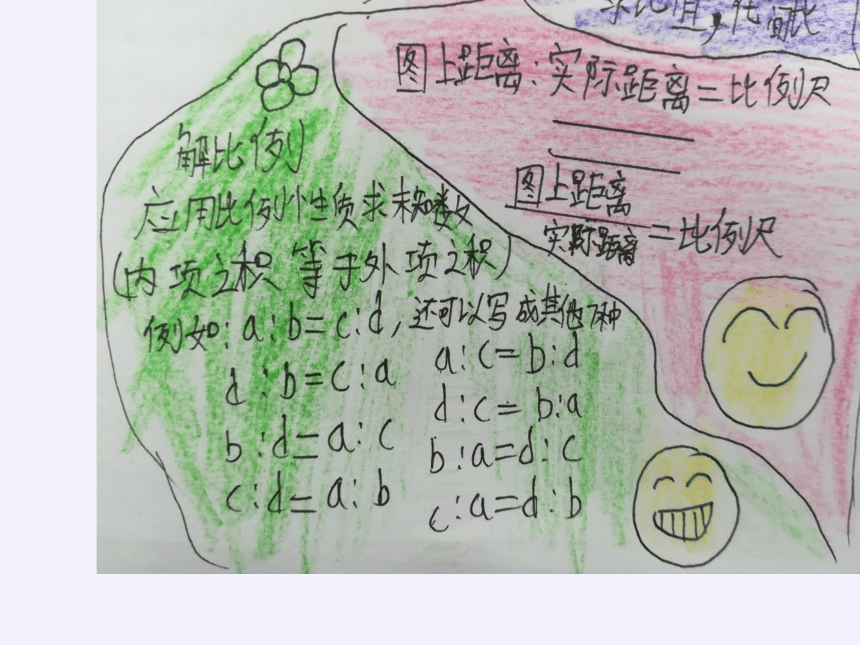 求比值,化简比
图上距离:实际距离=比例尺
图上距离
实际距离=比例尺
解比例
应用比例性质求未知数
(内项之积等于外项之积)
例如:a:b=c:d,还可以写成其他7种
d:b=c:a
b:d=a:c
c:d=a:b
a:c=b:d
d:c=b:a
b:a=d:c
c:a=d:b